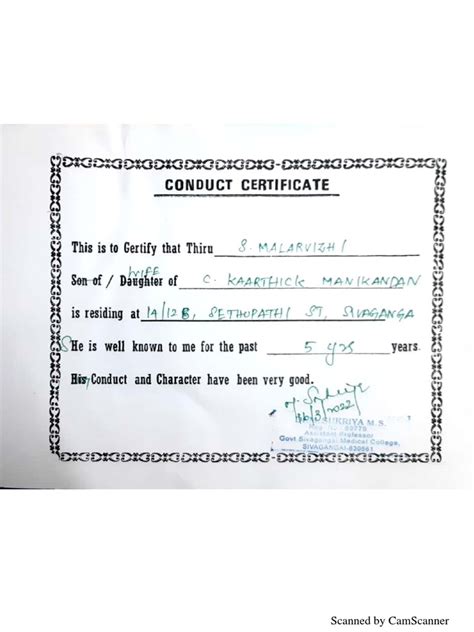 CONDUCT CERTIFICATE
This is to Certify that Thiru S. MALARVIZHI
WIFE
Son of / Daughter of C. KAARTHICK MANIKANDAN
is residing at 14/12B, SETHUPATHI ST, SIVAGANGA
SHe is well known to me for the past 5 yrs years.
His Conduct and Character have been very good.
16/3/2022
SUKRIYA M.S.
Assistant Professor
Govt.Sivagangai Medical College,
SIVAGANGAI-630561
Scanned by CamScanner